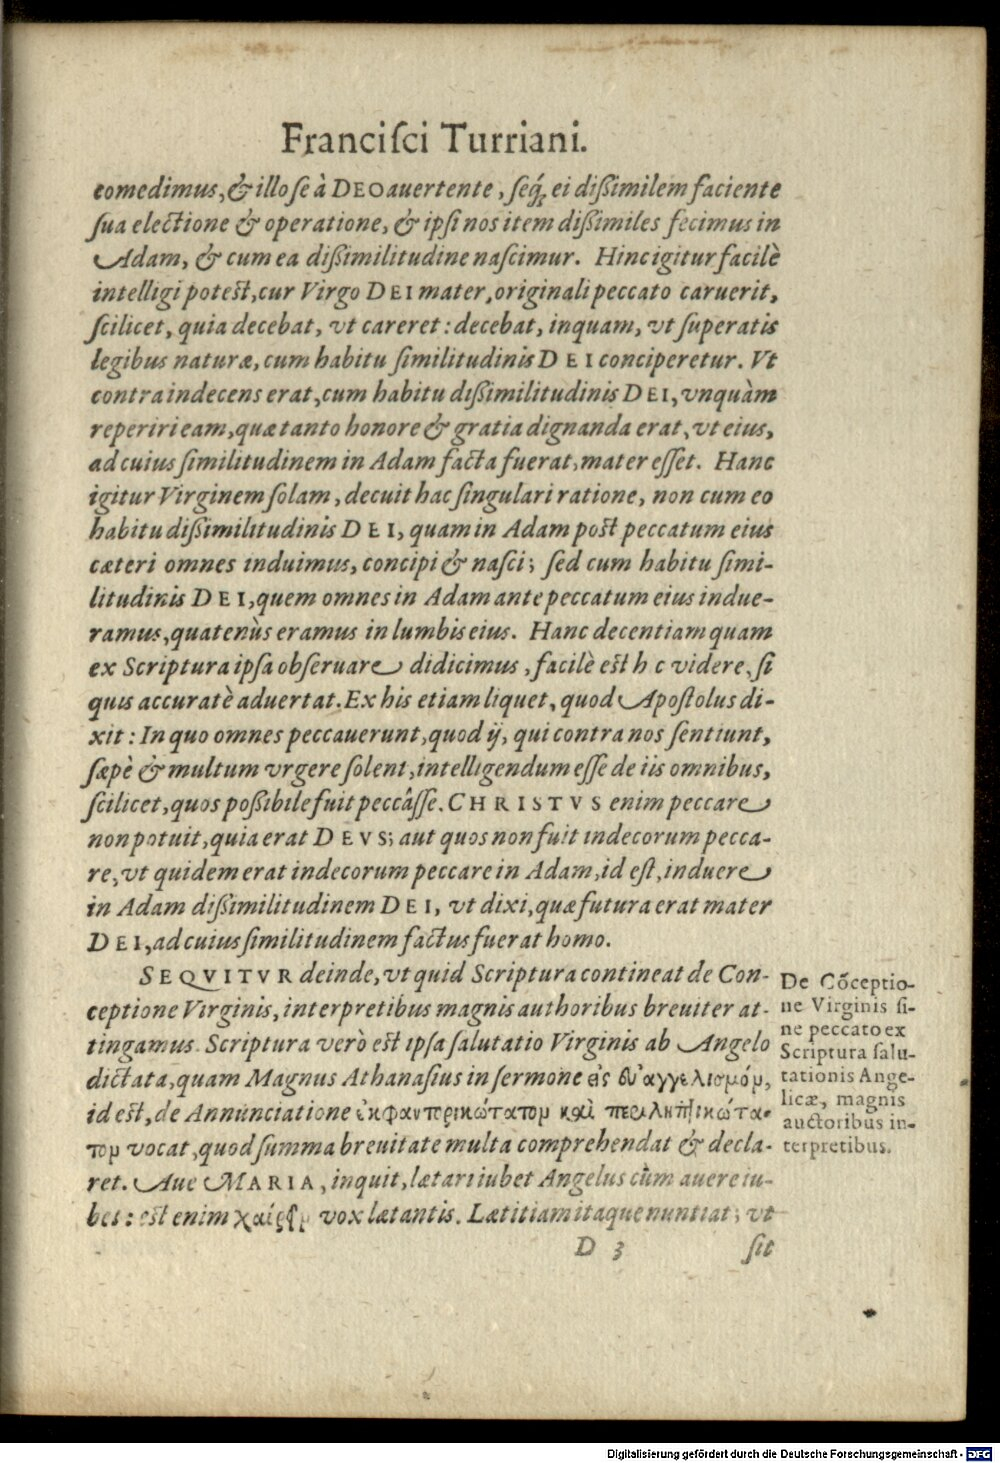 Franciſci Turriani.
comedimus, & illo ſe à DEO auertente, ſeq́; ei dißimilem faciente
ſua electione & operatione, & ipſi nos item dißimiles fecimus in
Adam, & cum ea dißimilitudine naſcimur. Hinc igitur facilè
intelligi poteſt, cur Virgo DEI mater, originali peccato caruerit,
ſcilicet, quia decebat, vt careret: decebat, inquam, vt ſuperatis
legibus naturæ, cum habitu ſimilitudinis DEI conciperetur. Vt
contra indecens erat, cum habitu dißimilitudinis DEI, vnquàm
reperiri eam, quæ tanto honore & gratia dignanda erat, vt eius,
ad cuius ſimilitudinem in Adam facta fuerat, mater eſſet. Hanc
igitur Virginem ſolam, decuit hac ſingulari ratione, non cum eo
habitu dißimilitudinis DEI, quam in Adam poſt peccatum eius
cæteri omnes induimus, concipi & naſci; ſed cum habitu ſimi-
litudinis DEI, quem omnes in Adam ante peccatum eius indue-
ramus, quatenùs eramus in lumbis eius. Hanc decentiam quam
ex Scriptura ipſa obſeruare didicimus, facilè eſt h c videre, ſi
quis accuratè aduertat. Ex his etiam liquet, quod Apoſtolus di-
xit: In quo omnes peccauerunt, quod ij, qui contra nos ſentiunt,
ſæpè & multum vrgere ſolent, intelligendum eſſe de iis omnibus,
ſcilicet, quos poßibile fuit peccâſſe. CHRISTVS enim peccare
non potuit, quia erat DEVS; aut quos non fuit indecorum pecca-
re, vt quidem erat indecorum peccare in Adam, id eſt, induere
in Adam dißimilitudinem DEI, vt dixi, quæ futura erat mater
DEI, ad cuius ſimilitudinem factus fuerat homo.
SEQVITVR deinde, vt quid Scriptura contineat de Con-
ceptione Virginis, interpretibus magnis authoribus breuiter at-
tingamus. Scriptura verò eſt ipſa ſalutatio Virginis ab Angelo
dictata, quam Magnus Athanaſius in ſermone εἰς εὐαγγελισμόν,
id eſt, de Annunciatione ἐκφαντορικώτατον καὶ περιληπτικώτα-
τον vocat, quod ſumma breuitate multa comprehendat & decla-
ret. Aue MARIA, inquit, lætari iubet Angelus cùm auere iu-
bet: eſt enim χαίρειν vox lætantis. Lætitiam itaque nuntiat; vt
D 3 ſit
De Cõceptio-
ne Virginis ſi-
ne peccato ex
Scriptura ſalu-
tationis Ange-
licæ, magnis
auctoribus in-
terpretibus.
Digitalisierung gefördert durch die Deutsche Forschungsgemeinschaft - DFG